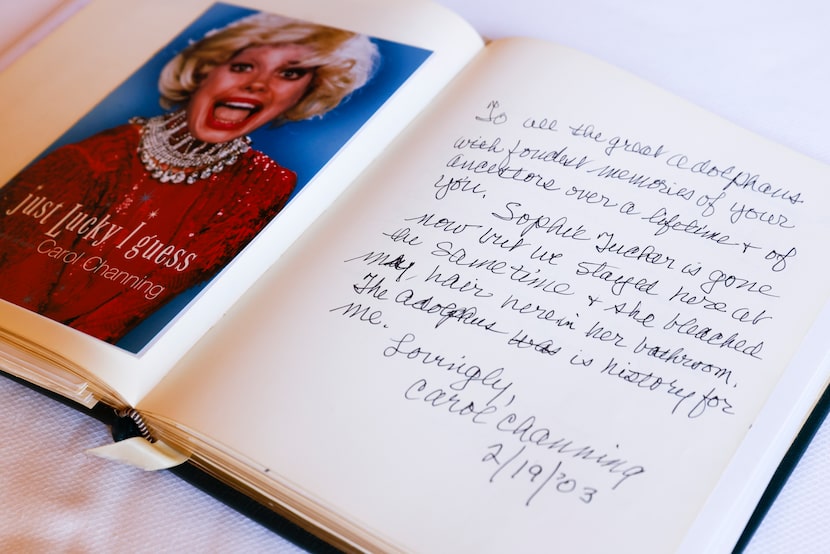 just Lucky, I guess
Carol Channing
To all the great adolphans
with fondest memories of your
ancestors over a lifetime & of
you.
Sophie Tucker is gone
now but we stayed here at
the sametime & she bleached
my hair here in her bathroom.
The adolphus is history for
me.
Lovingly,
Carol Channing
2/19/03